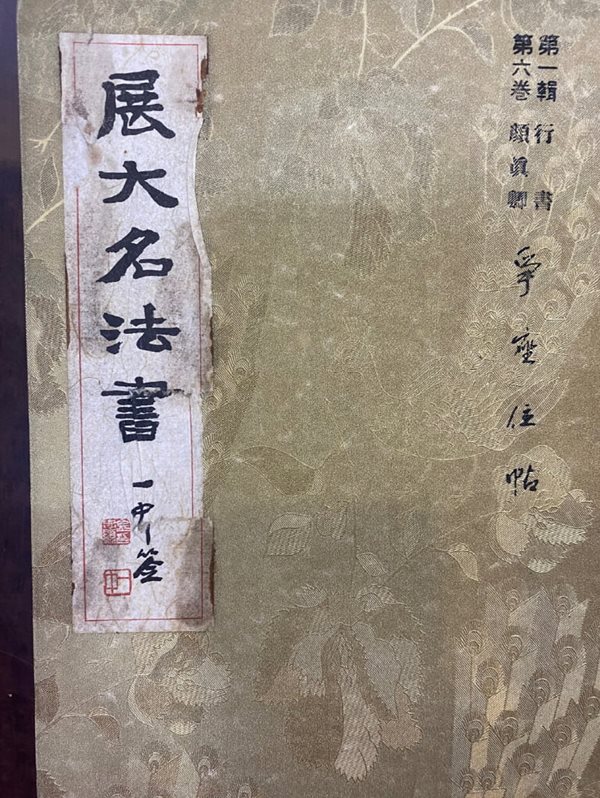 第一輯 行書
第六巻 顔眞卿
爭座位帖
展大名法書
一中簽